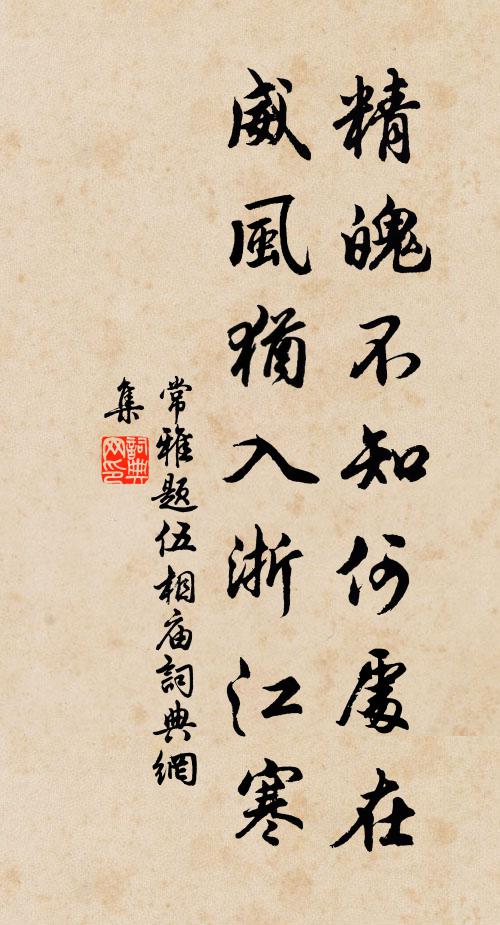 精魄不知何處在
威風猶入浙江寒
常雅題伍相庙詞典網
集
詞典
网印